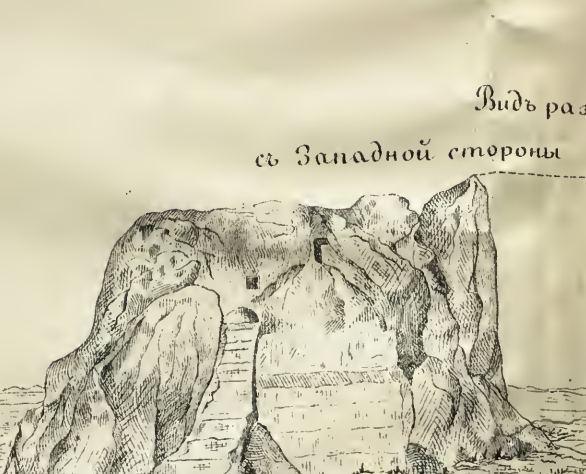 Видъ
съ Западной стороны